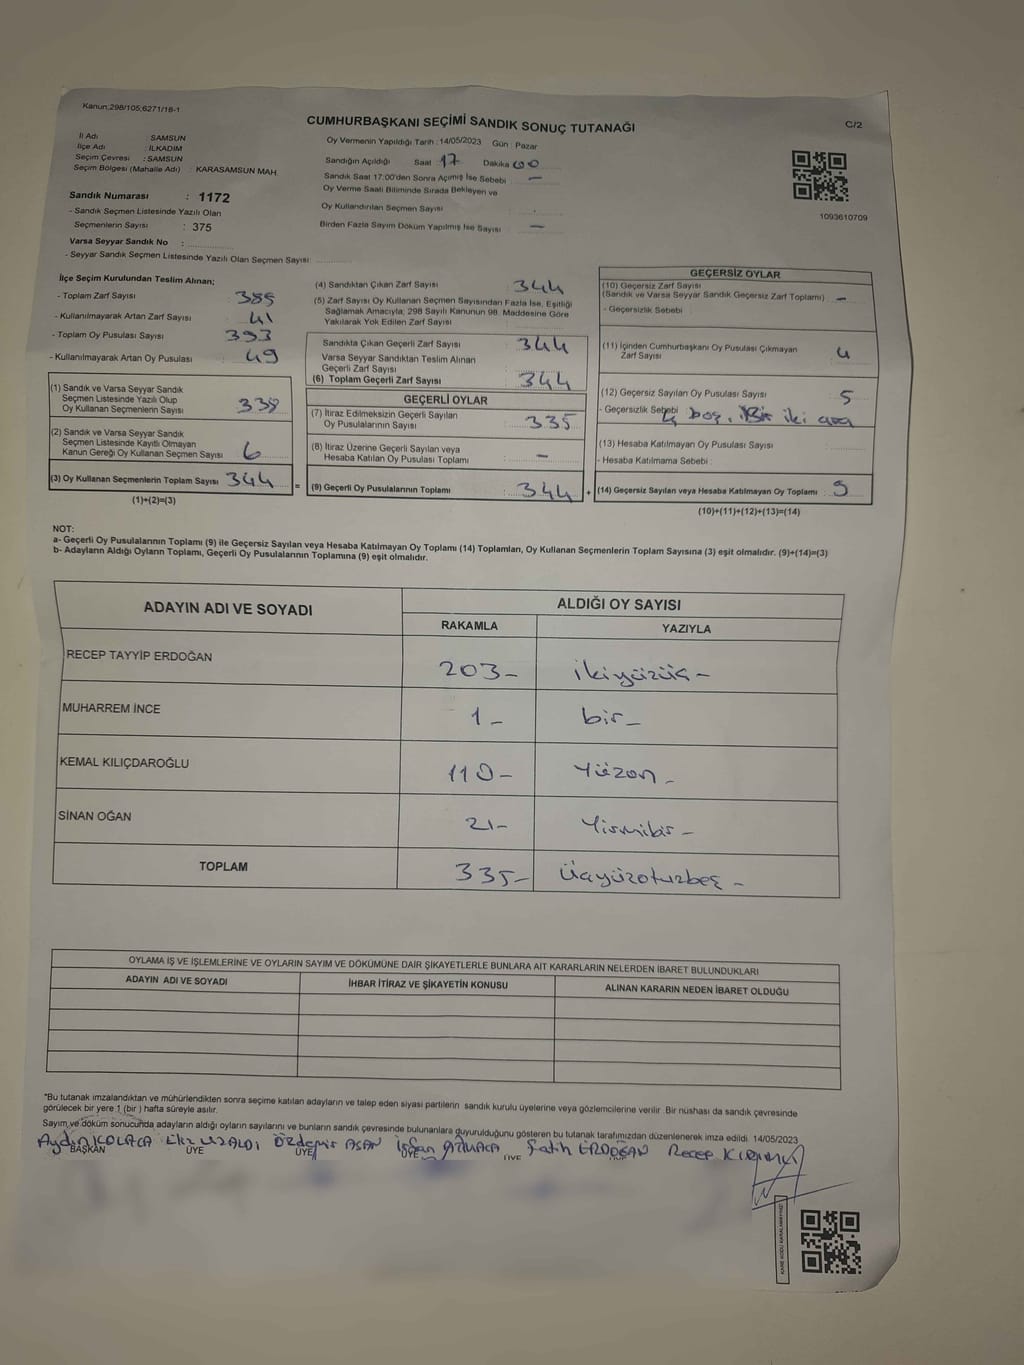 Kanun;298/105;6271/18-1
CUMHURBAŞKANI SEÇİMİ SANDIK SONUÇ TUTANAĞI
C/2
İl Adı : SAMSUN
İlçe Adı : İLKADIM
Seçim Çevresi : SAMSUN
Seçim Bölgesi (Mahalle Adı) : KARASAMSUN MAH.
Sandık Numarası : 1172
- Sandık Seçmen Listesinde Yazılı Olan
Seçmenlerin Sayısı : 375
Varsa Seyyar Sandık No :
- Seyyar Sandık Seçmen Listesinde Yazılı Olan Seçmen Sayısı
Oy Vermenin Yapıldığı Tarih : 14/05/2023 Gün : Pazar
Sandığın Açıldığı Saat 17 Dakika 00
Sandık Saat 17:00'den Sonra Açımış İse Sebebi —
Oy Verme Saati Bitiminde Sırada Bekleyen ve
Oy Kullandırılan Seçmen Sayısı :
Birden Fazla Sayım Döküm Yapılmış İse Sayısı —
1093610709
İlçe Seçim Kurulundan Teslim Alınan;
- Toplam Zarf Sayısı 385
- Kullanılmayarak Artan Zarf Sayısı 41
- Toplam Oy Pusulası Sayısı 393
- Kullanılmayarak Artan Oy Pusulası 49
(1) Sandık ve Varsa Seyyar Sandık
Seçmen Listesinde Yazılı Olup
Oy Kullanan Seçmenlerin Sayısı 338
(2) Sandık ve Varsa Seyyar Sandık
Seçmen Listesinde Kayıtlı Olmayan
Kanun Gereği Oy Kullanan Seçmen Sayısı 6
(3) Oy Kullanan Seçmenlerin Toplam Sayısı 344
(1)+(2)=(3)
(4) Sandıktan Çıkan Zarf Sayısı 344
(5) Zarf Sayısı Oy Kullanan Seçmen Sayısından Fazla İse, Eşitliği
Sağlamak Amacıyla; 298 Sayılı Kanunun 98. Maddesine Göre
Yakılarak Yok Edilen Zarf Sayısı :
Sandıkta Çıkan Geçerli Zarf Sayısı : 344
Varsa Seyyar Sandıktan Teslim Alınan
Geçerli Zarf Sayısı
(6) Toplam Geçerli Zarf Sayısı 344
GEÇERLİ OYLAR
(7) İtiraz Edilmeksizin Geçerli Sayılan
Oy Pusulalarının Sayısı : 335
(8) İtiraz Üzerine Geçerli Sayılan veya
Hesaba Katılan Oy Pusulası Toplamı : —
= (9) Geçerli Oy Pusulalarının Toplamı : 344 +
GEÇERSİZ OYLAR
(10) Geçersiz Zarf Sayısı
(Sandık ve Varsa Seyyar Sandık Geçersiz Zarf Toplamı) —
- Geçersizlik Sebebi
(11) İçinden Cumhurbaşkanı Oy Pusulası Çıkmayan
Zarf Sayısı 4
(12) Geçersiz Sayılan Oy Pusulası Sayısı 5
- Geçersizlik Sebebi boş, iki
(13) Hesaba Katılmayan Oy Pusulası Sayısı
- Hesaba Katılmama Sebebi :
(14) Geçersiz Sayılan veya Hesaba Katılmayan Oy Toplamı : 9
(10)+(11)+(12)+(13)=(14)
NOT:
a- Geçerli Oy Pusulalarının Toplamı (9) ile Geçersiz Sayılan veya Hesaba Katılmayan Oy Toplamı (14) Toplamları, Oy Kullanan Seçmenlerin Toplam Sayısına (3) eşit olmalıdır. (9)+(14)=(3)
b- Adayların Aldığı Oyların Toplamı, Geçerli Oy Pusulalarının Toplamına (9) eşit olmalıdır.
ADAYIN ADI VE SOYADI
ALDIĞI OY SAYISI
RAKAMLA YAZIYLA
RECEP TAYYİP ERDOĞAN 203- ikiyüzüç-
MUHARREM İNCE 1- bir-
KEMAL KILIÇDAROĞLU 110- Yüzon-
SİNAN OĞAN 21- Yirmibir-
TOPLAM 335- Üçyüzotuzbeş-
OYLAMA İŞ VE İŞLEMLERİNE VE OYLARIN SAYIM VE DÖKÜMÜNE DAİR ŞİKAYETLERLE BUNLARA AİT KARARLARIN NELERDEN İBARET BULUNDUKLARI
ADAYIN ADI VE SOYADI İHBAR İTİRAZ VE ŞİKAYETİN KONUSU ALINAN KARARIN NEDEN İBARET OLDUĞU
*Bu tutanak imzalandıktan ve mühürlendikten sonra seçime katılan adayların ve talep eden siyasi partilerin sandık kurulu üyelerine veya gözlemcilerine verilir. Bir nüshası da sandık çevresinde
görülecek bir yere 1 (bir) hafta süreyle asılır.
Sayım ve döküm sonucunda adayların aldığı oyların sayılarını ve bunların sandık çevresinde bulunanlara duyurulduğunu gösteren bu tutanak tarafımızdan düzenlenerek imza edildi. 14/05/2023
Aydın Özdemir Fatih ERDOĞAN Recep
BAŞKAN ÜYE ÜYE ÜYE ÜYE